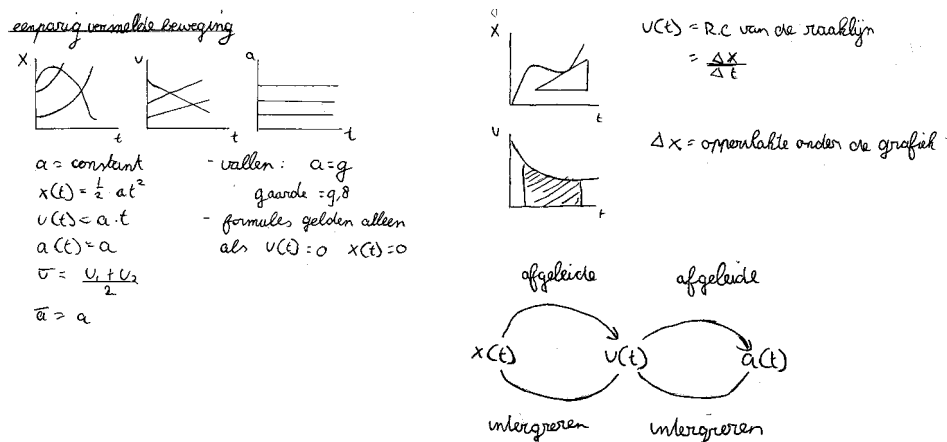 eenparig versnelde beweging
x
t
v
t
a
t
a = constant
x(t) = ½ at²
v(t) = a · t
a(t) = a
v̅ = (v₁ + v₂)/2
a̅ = a
- vallen: a = g
gaarde = 9,8
- formules gelden alleen
als v(t) = 0 x(t) = 0
x
t
v(t) = R.C van de raaklijn
= Δx/Δt
v
t
Δx = oppervlakte onder de grafiek
afgeleide afgeleide
x(t) v(t) a(t)
intergreren intergreren